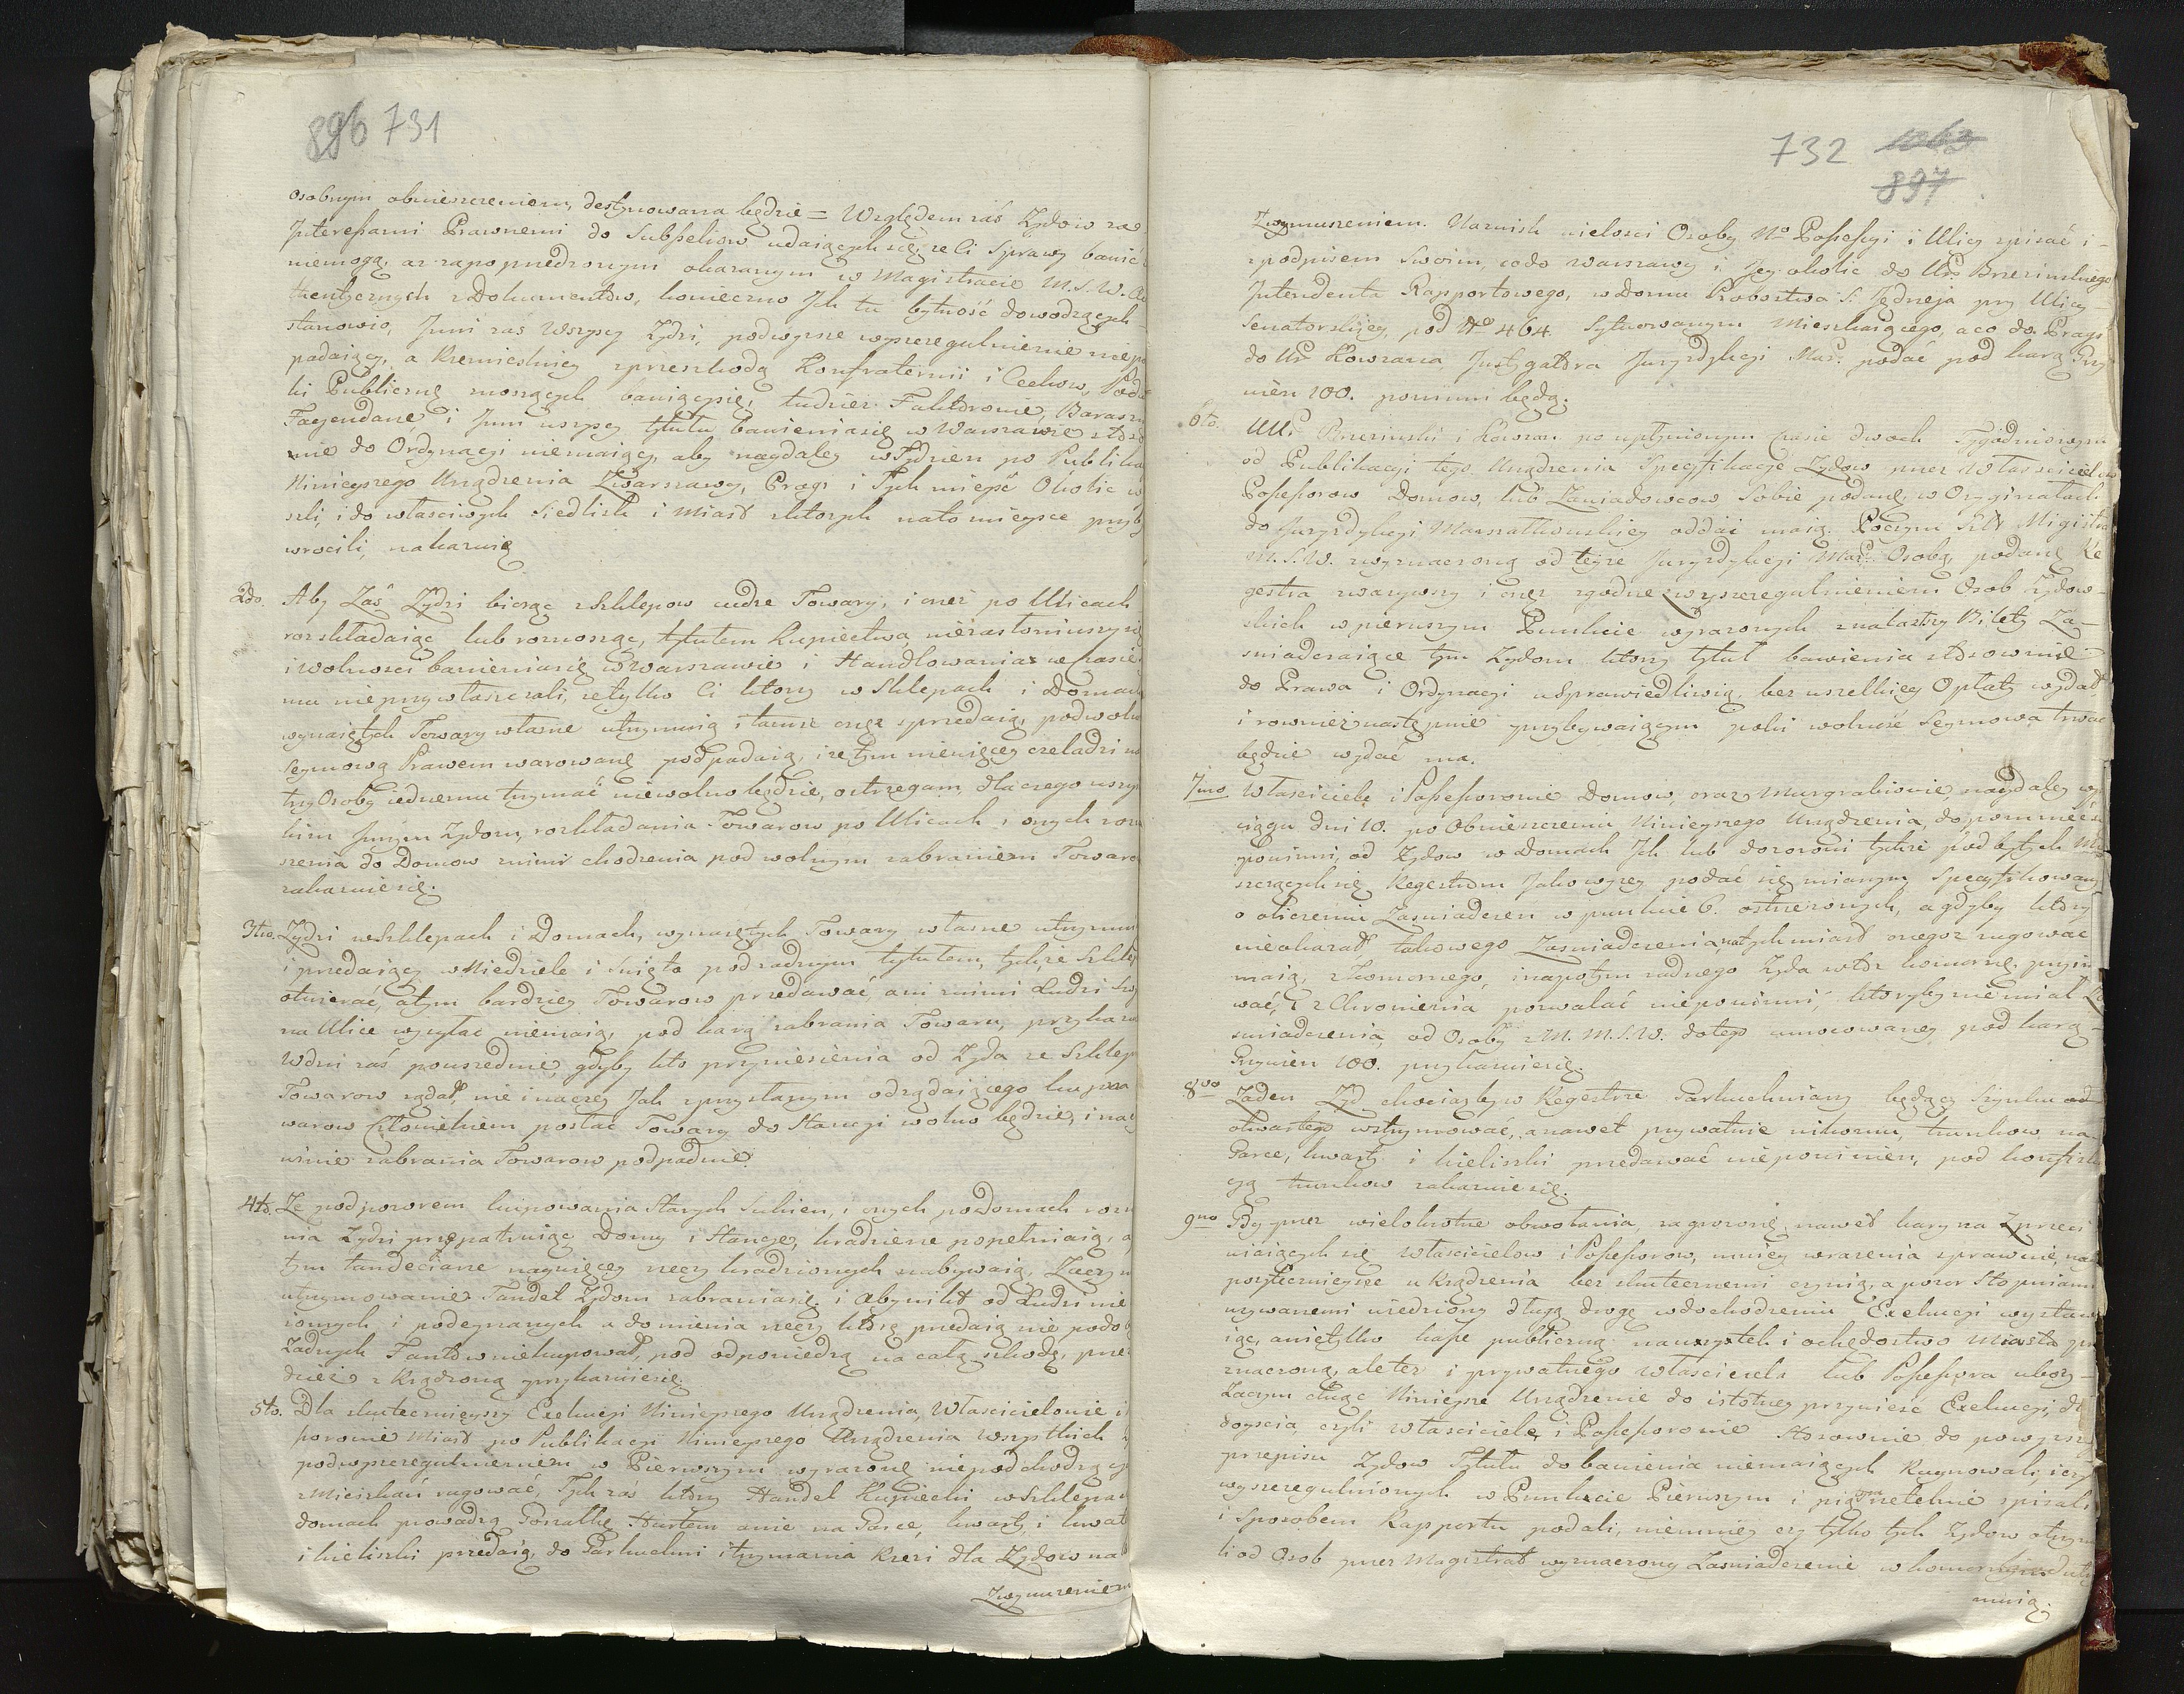 896 731
osobnym obwieszczeniem, destynowana będzie = Względem zaś Zydow za
Interessami Prawnemi do Subseliow udaiących się, ze Ci Sprawy bawić
niemogą, az zapoprzedzonym okazanym w Magistracie M. S. W. Au
thentycznych z Dokumentow, konieczno Jch tu bytność dowodzących
stanowio, Jnni zaś Wszyscy Zydzi, podwyzsze wyszczegulnienie niepo
padaiący, a Rzemieslnicy zprzeszkodą Konfraternii i Cechow, Poda
ki Publiczne znoszących bawiącysię, tudziez Faktorowie, Baraszn
Fayendarze i Jnni wszyscy tytułu bawieniasię w Warszawie stoso
wnie do Ordynacyi niemaiący, aby naydaley wTydzien po Publika
Ninieyszego Urządzenia Zwarszawy, Pragi i Tych mieysc Okolic wy
szli, i do własciwych Siedlisk i Miast z ktorych nato mieysce przyb
wrocili, nakazuię
2do. Aby Zaś Zydzi biorąc z Szklepow cudze Towary, i onez po Ulicach
rozkładaiąc lub roznosząc, tytułem kupiectwa niezasłoniwszy się
i wolnosci bawieniasię w Warszawie i Handlowania w czasie
mu nieprzywłaszczali, zetylko Ci ktorzy w Szklepach i Domach
wynaiętych Towary własne utrzymuią i tamze onez sprzedaią, podwolno
Seymową Prawem warowaną podpadaią, i ze tym niewięcey czeladzi na
trzy Osoby iednemu trzymać niewolno będzie, ostrzegam, dlaczego wszys
kim Jnnym Zydom, rozkładania Towarow po Ulicach i onych rozn
szenia do Domow z nimi chodzenia pod wolnym zabraniem Towaro
zakazuie się.
3tio. Zydzi w Szklepach i Domach, wynaiętych Towary własne utrzymu
i przedaiący w Niedziele i Swięta pod zadnym tytułem, tychze Szklep
otwierać, a tym bardziey Towarow przedawać, ani z nimi Ludzi Sw
na Ulice wysyłac niemaią, pod karą zabrania Towaru, przykazu
W dni zaś powszednie, gdyby kto przyniesienia od Zyda ze Szklep
Towarow ządał, nie inaczey Jak z przysłanym od ządaiącego
warow Człowiekiem posłać Towary do Stancyi wolno będzie, inac
winie zabrania Towarow podpadnie.
4to. Ze pod pozorem kupowania Starych Sukien, i onych po Domach rozn
nia Zydzi przepatruiąc Domy i Stancye, kradzieze popełniaią, a
tym tandeciarze naywięcey rzeczy kradzionych nabywaią, Zaczym
utrzymowanie Tandet Zydom zabraniasię i Abynikt od Ludzi nie
iomych i podeyrzanych a do mienia rzeczy ktorą przedaią nie podob
Zadnych Fantow niekupował, pod odpowiedzą na całą szkodę, prze
dziez z Krądzoną przykazuiesię
5to. Dla skutecznieyszy Exekucyi Ninieyszego Urządzenia, Własciciełowie i
ssorowie Miast po Publikacyi Ninieyszego Urządzenia Wszystkich
podwyszczegulnieniem w Pierwszym wyrazone niepodchodzący
z Mieszkań rugować, Tych zas ktorzy Handel Kupiecki w Szklepac
domach prowadzą Gorzałkę Hurtem a nie na Garce, kwarty i kwat
i kieliszki przedaią, do Garkuchni i trzymania Rzezi dla Zydow na
Zwymuszeniem
732 1063
897
Zwymuszeniem. Nazwisk wielosci Osoby No Possessyi i Ulicy spisać i
z podpisem Swoim, codo Warszawy i Jey okolic do Ur. Brzezinskiego
Jntendenta Rapportowego, w Domu Probostwa S. Jędrzeja przy Ulicy
Senatorskiey, pod No 464 Sytuowanym Mieszkaiącego, a co do Pragi
do Ur. Kowzana Justygatora Juryzdykcyi Mar. podać pod karą Grzy
wien 100. powinni będą.
6to. UUr. Brzezinski i Kowzan po upłynionym czasie dwoch Tygodniowym
od Publikacyi tego Urządzenia Specyfikacye Zydow przez Własciciełow
Possessorow Domow, lub Zawiadowcow Sobie podane, w Oryginałach
do Juryzdykcyi Marszałkowskiey oddać maią. Poczym Szl. Migistra
M. S. W. z wyznaczoną od teyze Juryzdykcyi Mar. Osobą, podane Re
gestra zwazywszy i onez zgodne z wyszczegulnieniem Osob Zydow-
skich w pierwszym Punkcie wyrazonych znalazłszy Bilety Za-
swiadczaiące tym Zydom ktorzy tytuł bawienia stosownie
do Prawa i Ordynacyi usprawiedliwią, bez wszelkiey Opłaty wydał
i rowniez następnie przybywaiącym poki wolność Seymowa trwać
będzie wydać ma.
7mo. Własciciele i Possessorowie Domow, oraz Murgrabiowie, naydaley w
ciągu dni 10. po Obwieszczeniu Ninieyszego Urządzenia, dopomnieć się
powinni, od Zydow w Domach Jch lub dozorowi tychze pod bytych Mi
szczących się Regestrom Jako wyzey podać się mianym Specyfikowany
o obliczeniu Zaswiadczen w punkcie 6. ostrzezonych, a gdyby ktory
nieokazał takowego Zaswiadczenia, natychmiast onegoz rugować
maią, z Komornego, i napotym zadnego Zyda w toz komorne przyim
wać, i z Chronienia pozwalać niepowinni, ktoryby niemiał Za
swiadczenia, od Osoby z M. M. S. W. dotego umocowaney, pod karą
Grzywien 100. przykazuiesię.
8vo Zaden Zyd chociazby w Regestrze Garkuchniany będący Szynku
otwartego wstrzymować, a nawet prywatnie nikomu, trunkow na
Garce, kwarty i kieliszki przedawać niepowinien, pod konfiska
cyą trunkow zakazuiesię.
9no Gdy przez wielokrotne obwołania, zagrozone nawet kary na Zprzeci
wiaiących się Własciciełow i Possessorow, mniey wrazenia sprawuie, nay
pozytecznieysze urządzenia bez skutecznemi czynią, a pozor Stopniami
uzywanemi wiedziony długą drogę w dochodzeniu Exekucyi wystaw
iąc, a nie tylko kasse publiczną nauszystek i ochędostwo Miasta prze
znaczoną, ale tez i prywatnego Własciciela lub Possessora ubozy-
Zaczym chcąc Niniejsze Urządzenie do istotney przywieść Exekucyi, do
doyscia, czyli Własciciele i Possessorowie Stosownie do powyzsz
przepisu Zydow Tytułu do bawienia niemaiących Rugowali, i czy
wyszczegulnionych w Punkcie Pierwszym i piątym rzetelnie spisali
i Sposobem Rapportu podali, niemniey czy tylko tych Zydow otrzym
li od Osob przez Magistrat wyznaczony Zaswiadczenie w komornym utrzy
muią.